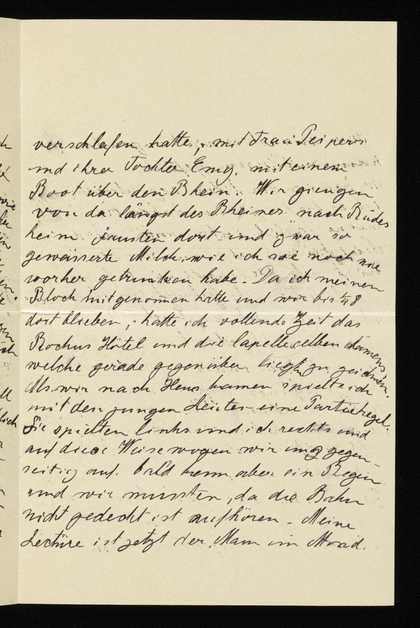 verschlafen hatte, mit Frau Peipers
und ihrer Tochter Emy. mit einem
Boot über den Rhein. Wir giengen
von da längst des Rheines nach Rüdes
heim jausten dort und zwar so
gewässerte Milch, wie ich sie noch nie
vorher getrunken habe. Da ich meinen
Block mitgenommen hatte und wir bis 1/2 8
dort blieben, hatte ich vollends Zeit das
Rochus Hotel und die Capelle selben Namens,
welche gerade gegenüber liegt zu zeichnen.
Als wir nach Haus kamen spielte ich
mit den jungen Leuten eine Partie Kegel.
Sie spielten links und ich rechts und
auf diese Weise wogen wir uns gegen-
seitig auf. Bald kam aber ein Regen
und wir mussten, da die Bahn
nicht gedeckt ist aufhören. Meine
Lectüre ist jetzt der Mann im Mond.